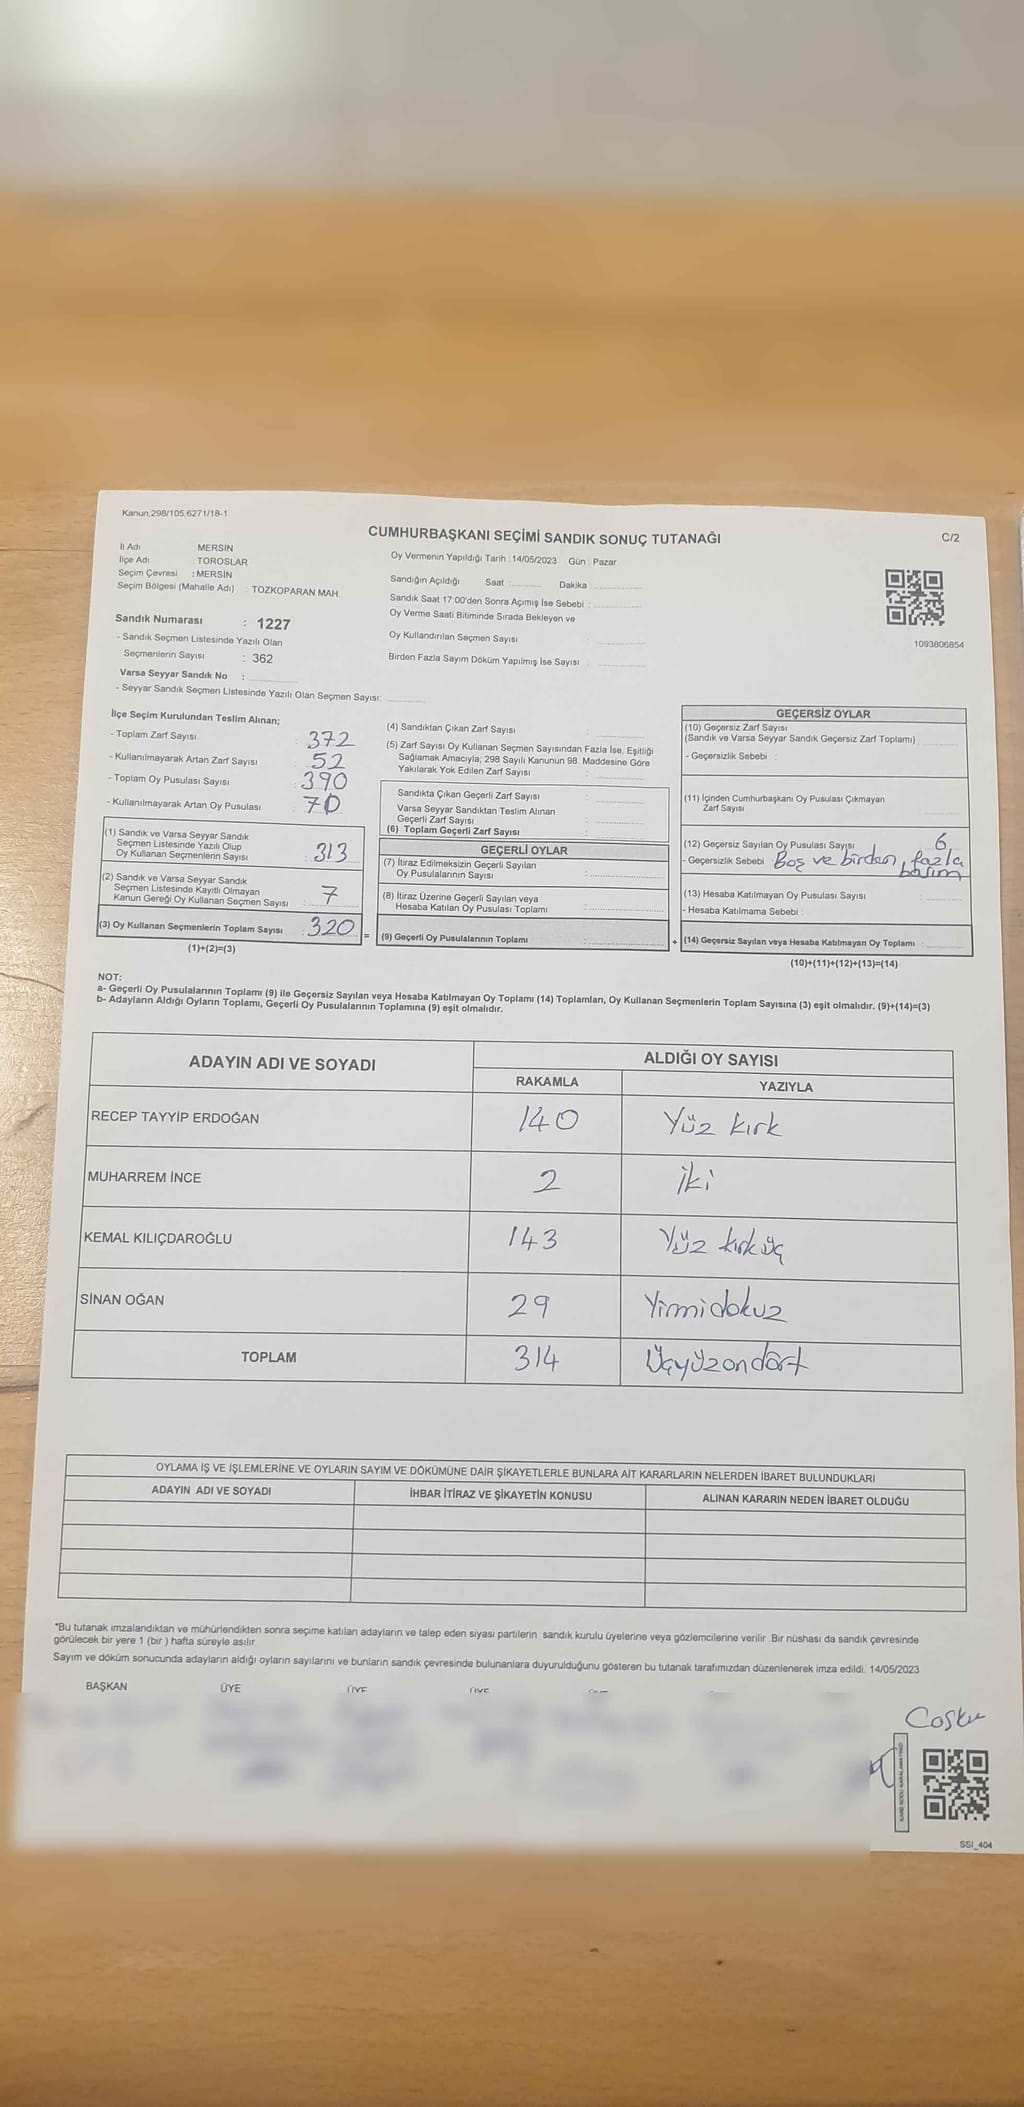 Kanun;298/105,6271/18-1
CUMHURBAŞKANI SEÇİMİ SANDIK SONUÇ TUTANAĞI
C/2
İl Adı MERSİN
İlçe Adı : TOROSLAR
Seçim Çevresi : MERSİN
Seçim Bölgesi (Mahalle Adı) : TOZKOPARAN MAH.
Sandık Numarası : 1227
- Sandık Seçmen Listesinde Yazılı Olan
Seçmenlerin Sayısı : 362
Varsa Seyyar Sandık No :
- Seyyar Sandık Seçmen Listesinde Yazılı Olan Seçmen Sayısı:
Oy Vermenin Yapıldığı Tarih : 14/05/2023 Gün : Pazar
Sandığın Açıldığı Saat : Dakika :
Sandık Saat 17:00'den Sonra Açımış İse Sebebi :
Oy Verme Saati Bitiminde Sırada Bekleyen ve
Oy Kullandırılan Seçmen Sayısı :
Birden Fazla Sayım Döküm Yapılmış İse Sayısı :
1093806854
İlçe Seçim Kurulundan Teslim Alınan;
- Toplam Zarf Sayısı : 372
- Kullanılmayarak Artan Zarf Sayısı : 52
- Toplam Oy Pusulası Sayısı : 390
- Kullanılmayarak Artan Oy Pusulası : 70
(1) Sandık ve Varsa Seyyar Sandık
Seçmen Listesinde Yazılı Olup
Oy Kullanan Seçmenlerin Sayısı : 313
(2) Sandık ve Varsa Seyyar Sandık
Seçmen Listesinde Kayıtlı Olmayan
Kanun Gereği Oy Kullanan Seçmen Sayısı : 7
(3) Oy Kullanan Seçmenlerin Toplam Sayısı : 320
(1)+(2)=(3)
=
(4) Sandıktan Çıkan Zarf Sayısı :
(5) Zarf Sayısı Oy Kullanan Seçmen Sayısından Fazla İse, Eşitliği
Sağlamak Amacıyla; 298 Sayılı Kanunun 98. Maddesine Göre
Yakılarak Yok Edilen Zarf Sayısı :
Sandıkta Çıkan Geçerli Zarf Sayısı :
Varsa Seyyar Sandıktan Teslim Alınan
Geçerli Zarf Sayısı :
(6) Toplam Geçerli Zarf Sayısı :
GEÇERLİ OYLAR
(7) İtiraz Edilmeksizin Geçerli Sayılan
Oy Pusulalarının Sayısı :
(8) İtiraz Üzerine Geçerli Sayılan veya
Hesaba Katılan Oy Pusulası Toplamı :
(9) Geçerli Oy Pusulalarının Toplamı :
+
GEÇERSİZ OYLAR
(10) Geçersiz Zarf Sayısı
(Sandık ve Varsa Seyyar Sandık Geçersiz Zarf Toplamı) :
- Geçersizlik Sebebi :
(11) İçinden Cumhurbaşkanı Oy Pusulası Çıkmayan
Zarf Sayısı
(12) Geçersiz Sayılan Oy Pusulası Sayısı : 6
- Geçersizlik Sebebi : Boş ve birden fazla
basım
(13) Hesaba Katılmayan Oy Pusulası Sayısı
- Hesaba Katılmama Sebebi :
(14) Geçersiz Sayılan veya Hesaba Katılmayan Oy Toplamı :
(10)+(11)+(12)+(13)=(14)
NOT:
a- Geçerli Oy Pusulalarının Toplamı (9) ile Geçersiz Sayılan veya Hesaba Katılmayan Oy Toplamı (14) Toplamları, Oy Kullanan Seçmenlerin Toplam Sayısına (3) eşit olmalıdır. (9)+(14)=(3)
b- Adayların Aldığı Oyların Toplamı, Geçerli Oy Pusulalarının Toplamına (9) eşit olmalıdır.
ADAYIN ADI VE SOYADI
ALDIĞI OY SAYISI
RAKAMLA YAZIYLA
RECEP TAYYİP ERDOĞAN 140 Yüz kırk
MUHARREM İNCE 2 iki
KEMAL KILIÇDAROĞLU 143 Yüz kırk üç
SİNAN OĞAN 29 Yirmidokuz
TOPLAM 314 Üçyüzondört
OYLAMA İŞ VE İŞLEMLERİNE VE OYLARIN SAYIM VE DÖKÜMÜNE DAİR ŞİKAYETLERLE BUNLARA AİT KARARLARIN NELERDEN İBARET BULUNDUKLARI
ADAYIN ADI VE SOYADI İHBAR İTİRAZ VE ŞİKAYETİN KONUSU ALINAN KARARIN NEDEN İBARET OLDUĞU
*Bu tutanak imzalandıktan ve mühürlendikten sonra seçime katılan adayların ve talep eden siyasi partilerin sandık kurulu üyelerine veya gözlemcilerine verilir. Bir nüshası da sandık çevresinde
görülecek bir yere 1 (bir ) hafta süreyle asılır.
Sayım ve döküm sonucunda adayların aldığı oyların sayılarını ve bunların sandık çevresinde bulunanlara duyurulduğunu gösteren bu tutanak tarafımızdan düzenlenerek imza edildi. 14/05/2023
BAŞKAN ÜYE ÜYE ÜYE
SSI_404